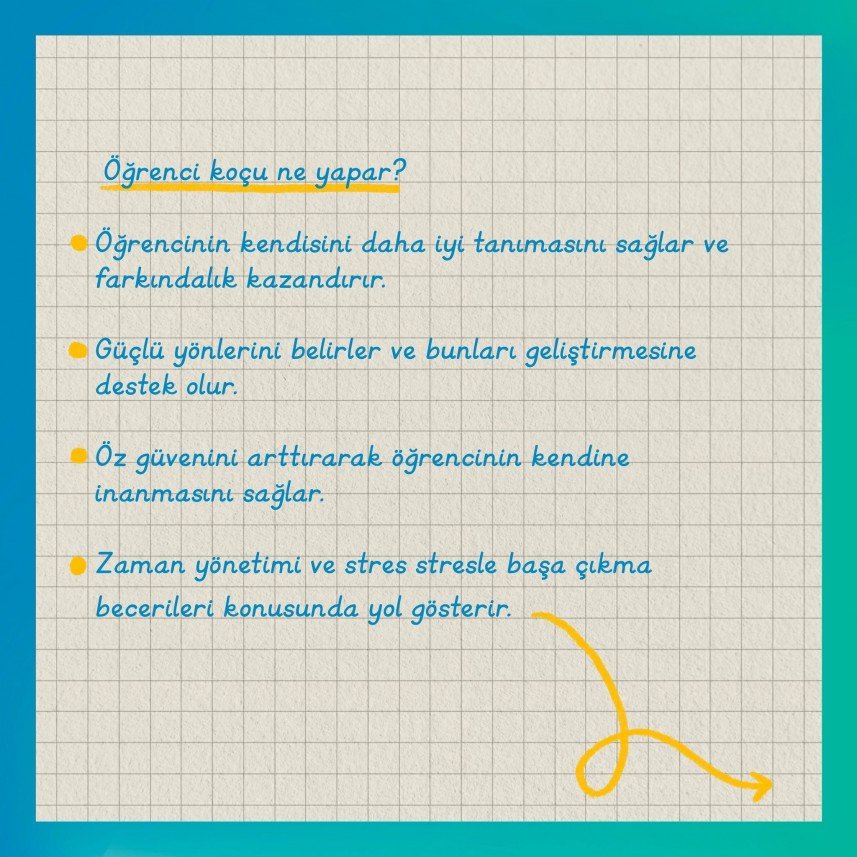 Öğrenci koçu ne yapar?
Öğrencinin kendisini daha iyi tanımasını sağlar ve
farkındalık kazandırır.
Güçlü yönlerini belirler ve bunları geliştirmesine
destek olur.
Öz güvenini arttırarak öğrencinin kendine
inanmasını sağlar.
Zaman yönetimi ve stres stresle başa çıkma
becerileri konusunda yol gösterir.